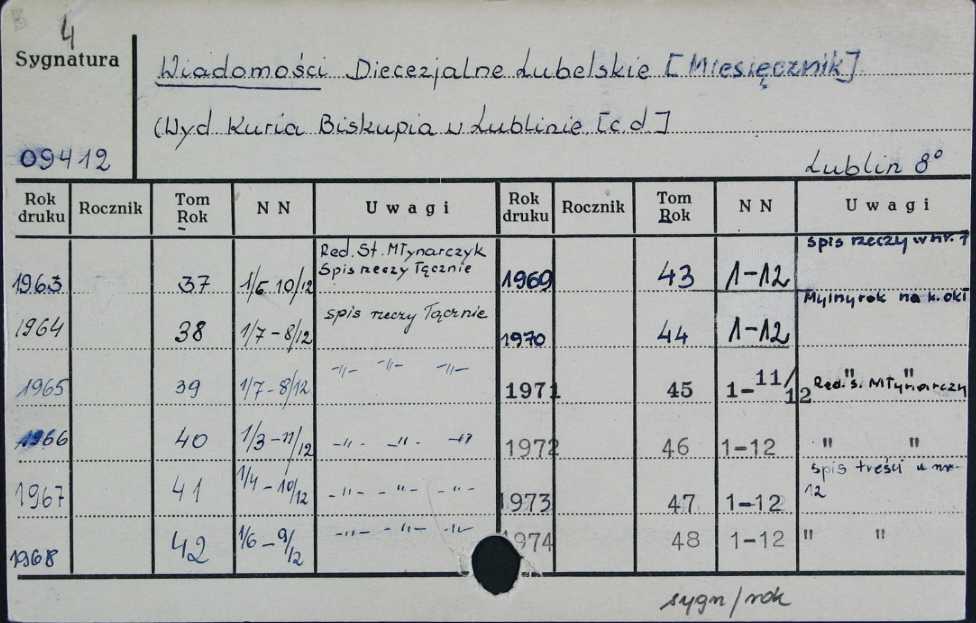 4
Sygnatura
Wiadomości Diecezjalne Lubelskie [Miesięcznik]
(Wyd Kuria Biskupia w Lublinie [c.d]
09412
Lublin 8°
Rok druku Rocznik Tom Rok NN Uwagi Rok druku Rocznik Tom Rok NN Uwagi
1963 37 1/6 10/12 Red. St. Młynarczyk Spis rzeczy łącznie 1969 43 1-12 spis rzeczy w nr. 1
1964 38 1/7-8/12 spis rzeczy łącznie 1970 44 1-12 Mylny rok na k. okł
1965 39 1/7-8/12 -"- -"- -"- 1971 45 1-11/12 " " Red. S. Młynarczy
1966 40 1/3-11/12 -"- -"- -"- 1972 46 1-12 " "
1967 41 1/4-10/12 -"- -"- -"- 1973 47 1-12 spis treści w nr- 12
1968 42 1/6-9/12 -"- -"- -"- 1974 48 1-12 " "
sygn/rok